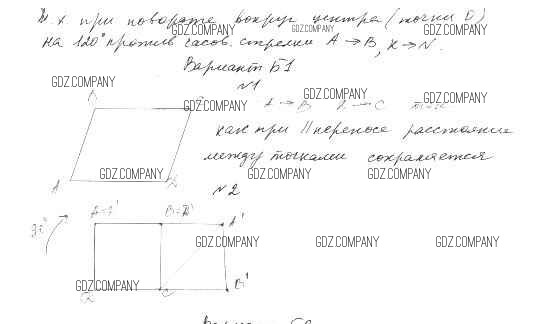 т. к при повороте вокруг центра (точки O)
GDZ.COMPANY GDZ.COMPANY GDZ.COMPANY
на 120° против часов. стрелки A → B, K → N.
Вариант Б1
№1
GDZ.COMPANY GDZ.COMPANY GDZ.COMPANY GDZ.COMPANY
A → B → C
как при || переносе расстояние
между точками сохраняется
A
GDZ.COMPANY GDZ.COMPANY GDZ.COMPANY
№2
A' A'
90°
GDZ.COMPANY GDZ.COMPANY GDZ.COMPANY
GDZ.COMPANY
C B'
Вариант